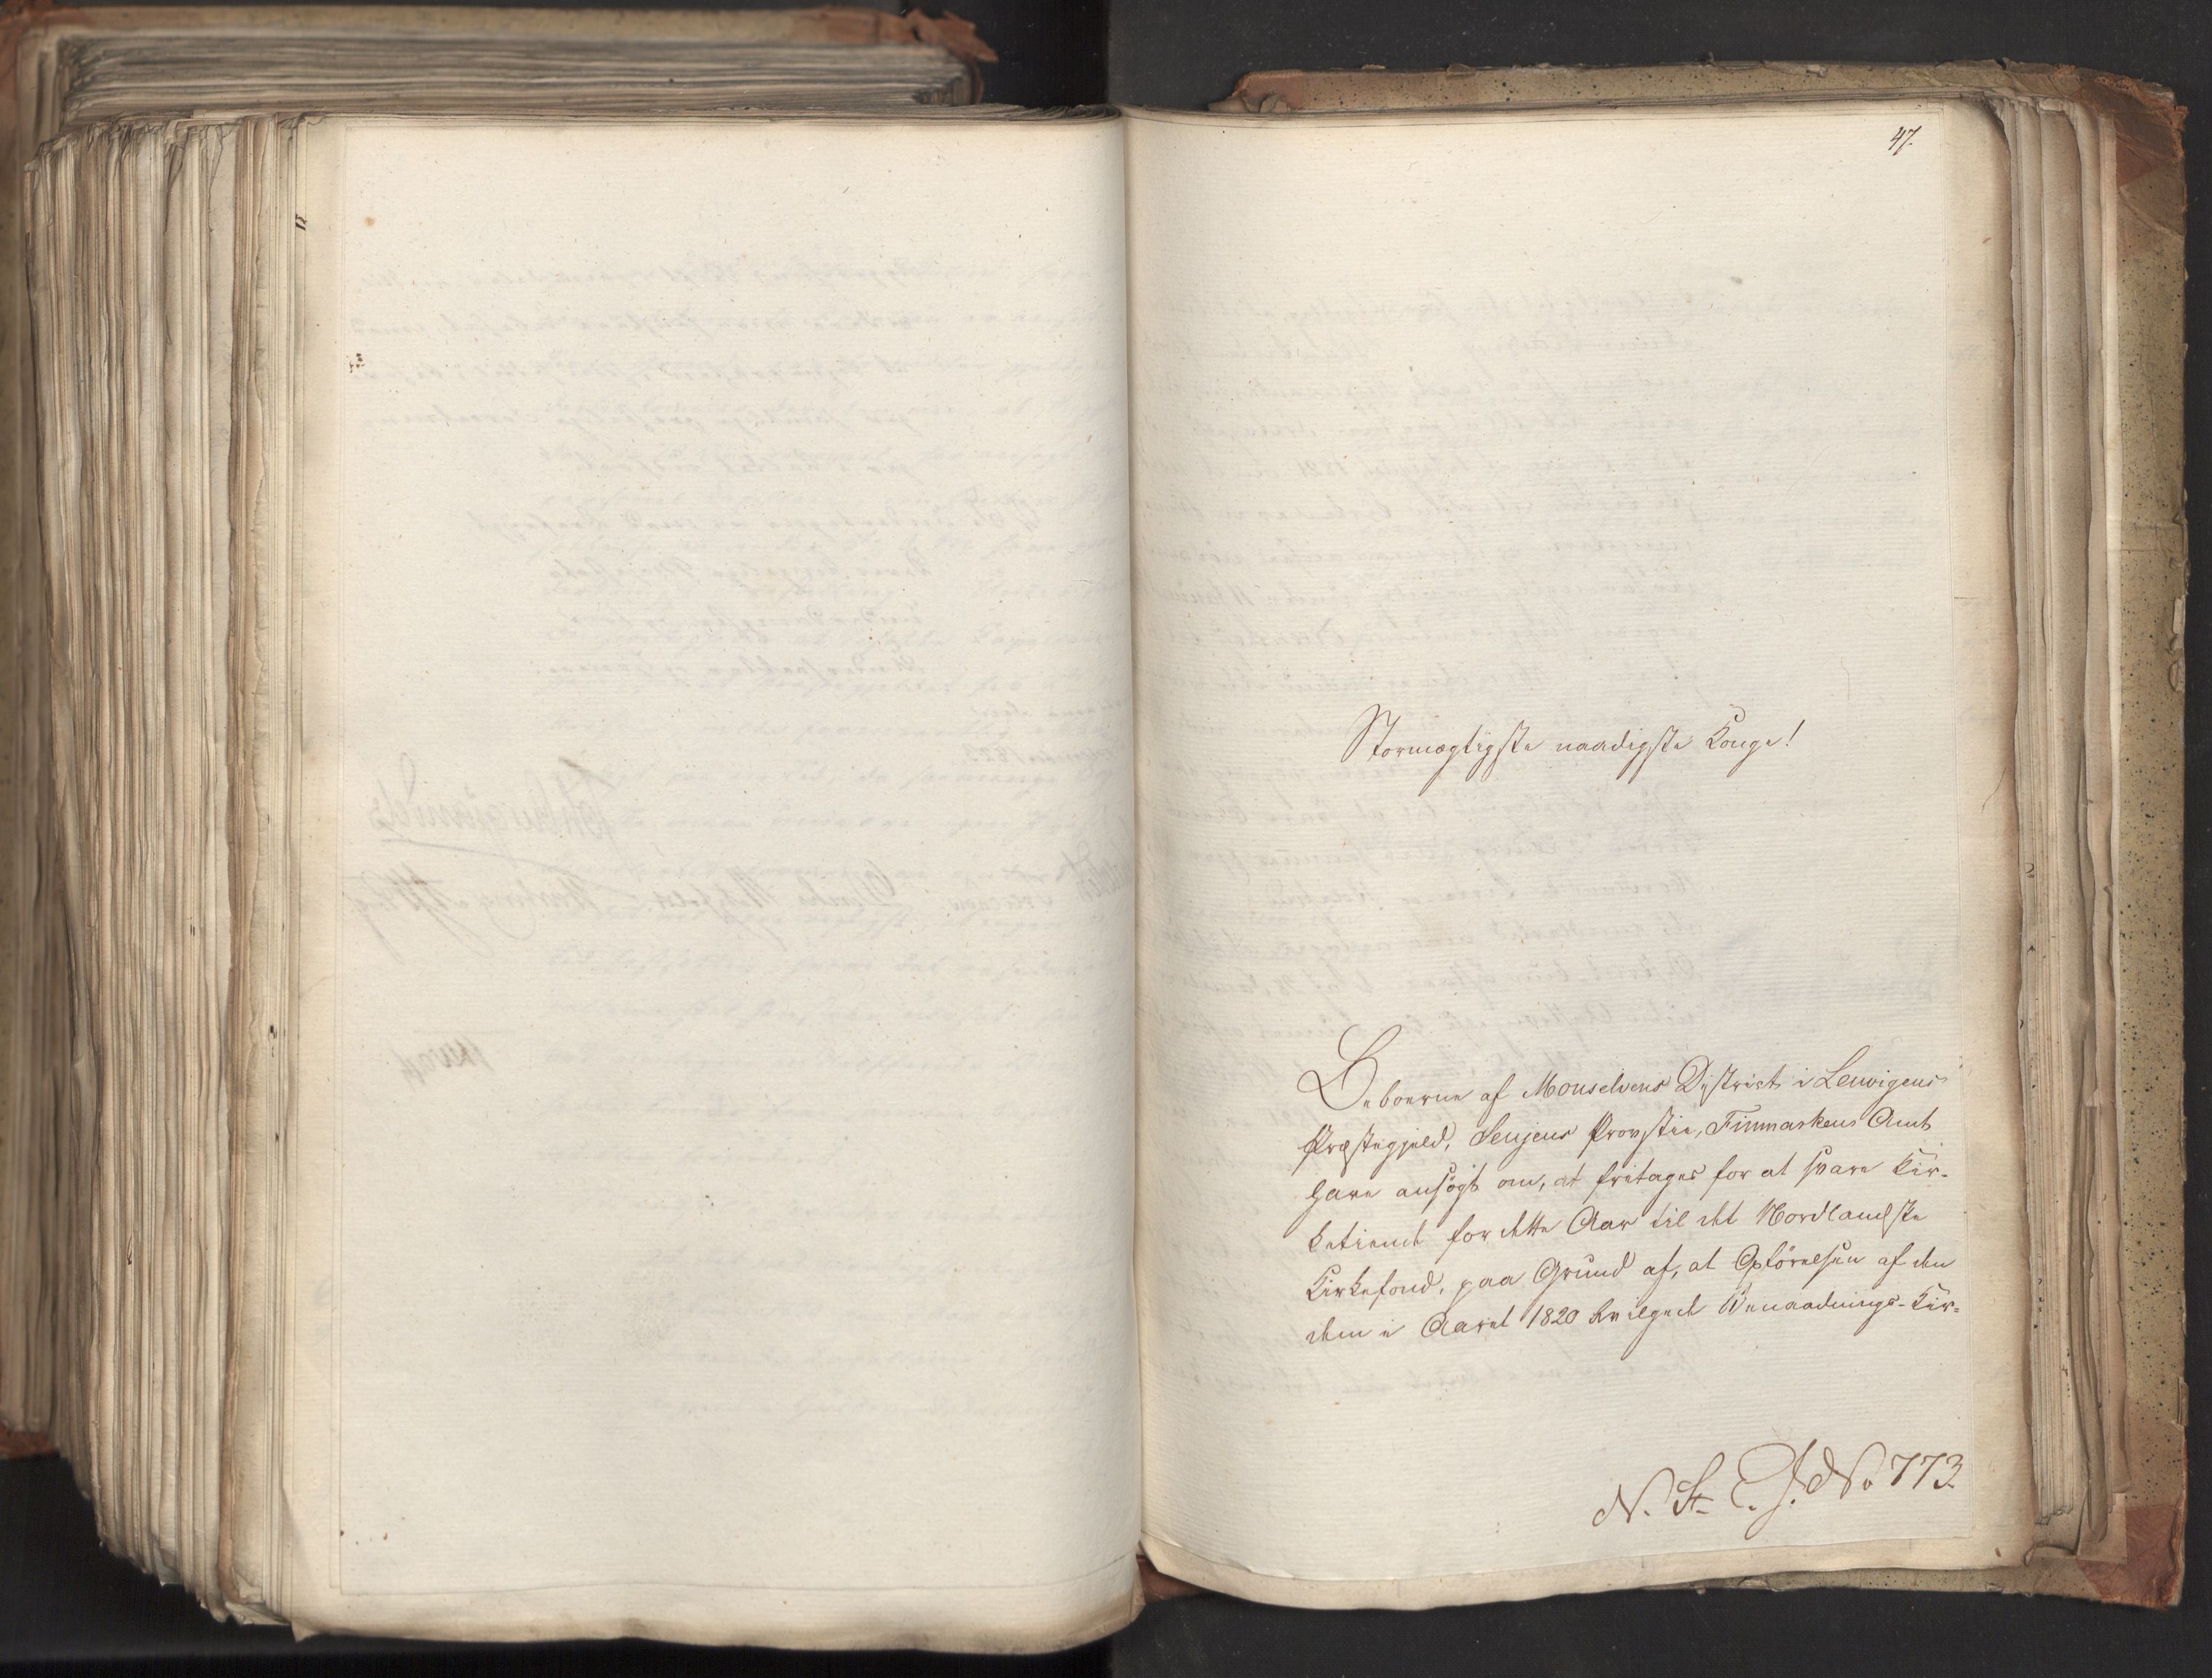 47.
Stormægtigste naadigste Konge!
Beboerne af Monselvens District i Lenvigens
Præstegjeld, Senjens Provstie, Finmarkens Amt
have ansögt om, at fritages for at svare Kir-
ketiende for dette Aar til det Nordlandske
Kirkefond, paa Grund af, at Opförelsen af den
dem i Aaret 1820 bevilgede Benaadnings-Kir-
N. St. E. J. No 773.